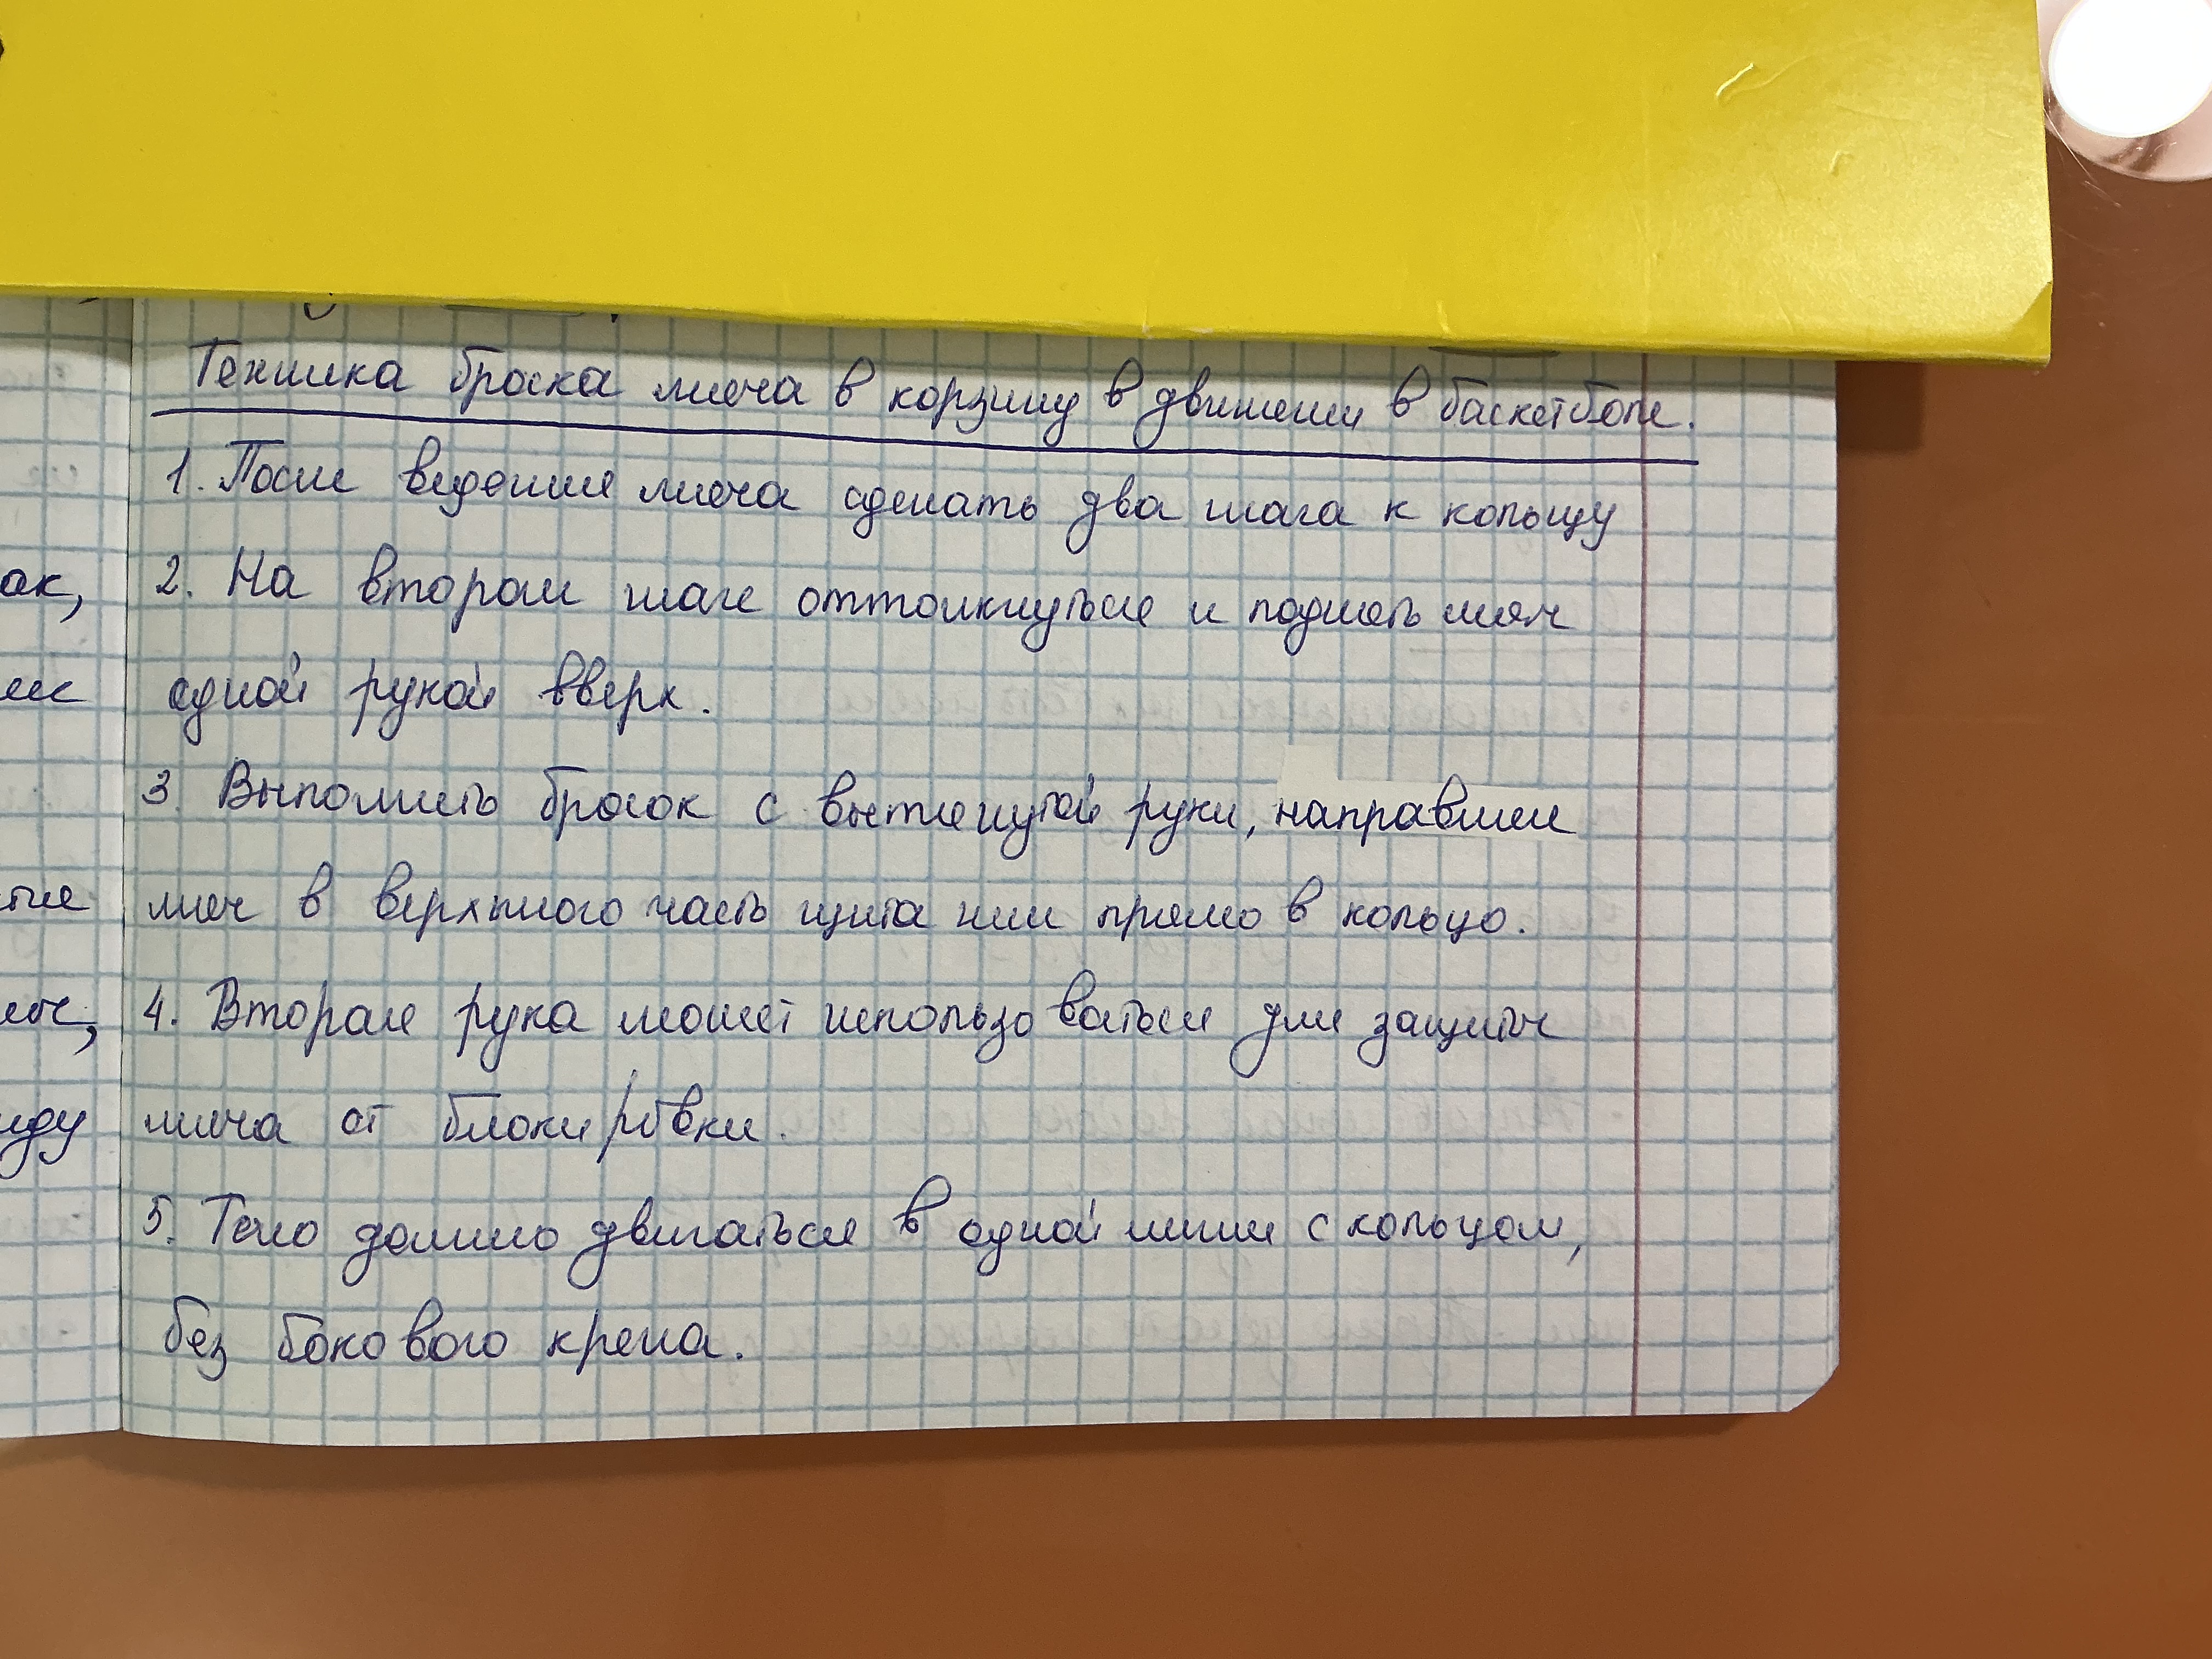 Техника броска мяча в корзину в движении в баскетболе.
1. После ведения мяча сделать два шага к кольцу
2. На втором шаге оттолкнуться и поднять мяч
одной рукой вверх.
3. Выполнить бросок с вытянутой руки, направляя
мяч в верхнюю часть щита или прямо в кольцо.
4. Вторая рука может использоваться для защиты
мяча от блокировки.
5. Тело должно двигаться в одной линии с кольцом,
без бокового крена.